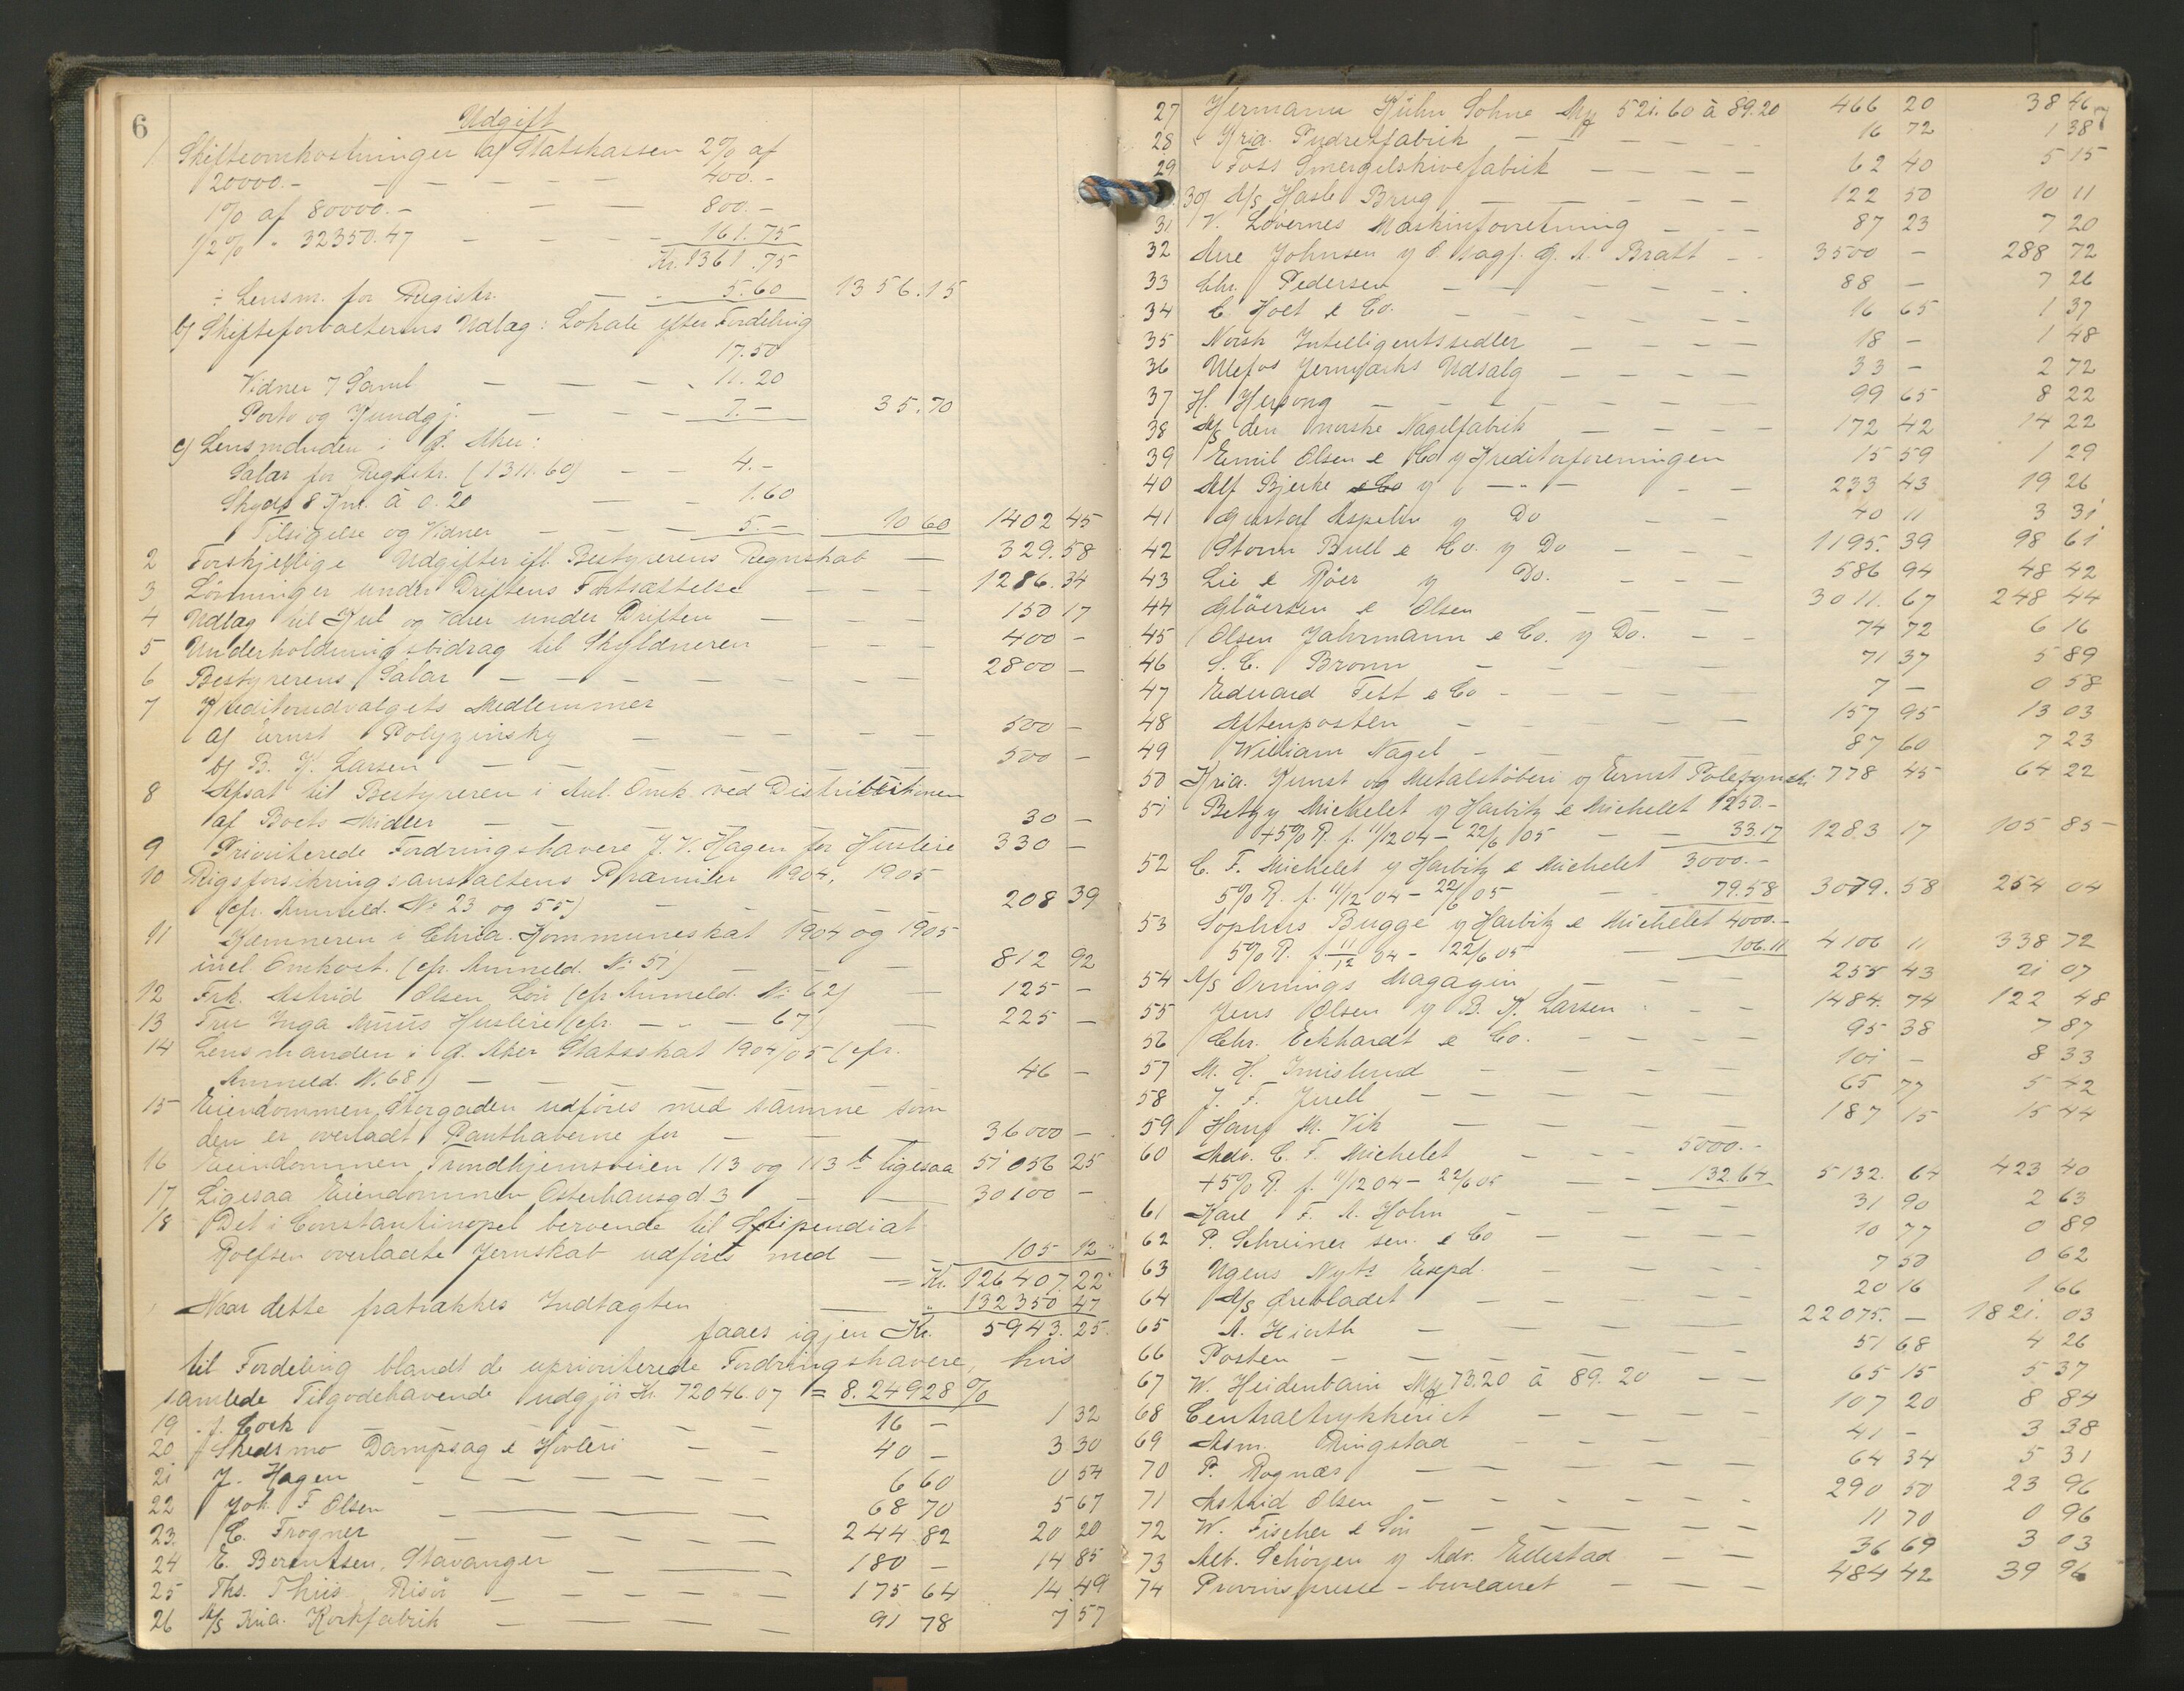 6
Udgift
1 Skifteomkostninger a) Statskassen 2% af
120000.- — — — — 400.-
1% af 80000.- — — 800.-
1/2% " 32350.47 — — 161.75
Kr. 1361.75
÷ Lensm. for Registr. — 5.60 1356.15
b) Skifteforvalterens Udlæg: Lokale efter Fordeling
17.50
Vidner 7 Saml. — — — 11.20
Porto og Kundgj. — — — 7.- 35.70
c) Lensmanden i Ø. Aker:
Salar for Registr. (1311.60) — — 4.-
Skyds 8 Km. à 0.20 — — 1.60
Tilsigelse og Vidner — — — 5.- 10 60 1402 45
2 Forskjellige Udgifter ifl. Bestyrerens Regnskab — 329.58
3 Lønninger under Driftens Fortsættelse — — — 1286.34
4 Udlæg til Kul og Varer under Driften — — — 150 17
5 Underholdningsbidrag til Skyldneren — — — 400 -
6 Bestyrerens Salar — — — — — — — 2800 -
7 Kreditorudvalgets Medlemmer
a) Ernst Polyzinsky — — — — — 500 -
b) B. K. Larsen — — — — — — 500 -
8 Afsat til Bestyreren i Anl. Omk. ved Distributionen
af Boets Midler — — 30 -
9 Prioriterede Fordringshavere J. V. Hagen for Husleie 330 -
10 Rigsforsikringsanstaltens Præmier 1904, 1905
(cfr. Anmeld. No 23 og 55) — — — — 208 39
11 Kæmneren i Chria. Kommuneskat 1904 og 1905
incl Omkost. (cfr. Anmeld. No 51) — — — 812 92
12 Frk. Astrid Olsen Løn (cfr Anmeld. No 62) — 125 -
13 Fru Inga Muus Husleie (cfr. — " — 67) — 225 -
14 Lensmanden i Ø. Aker Statsskat 1904/05 (cfr.
Anmeld. No. 68) — — — — 46 -
15 Eiendommen Storgaden udføres med samme som
den er overladt Panthaverne for — — 36000 -
16 Eiendommen Trondhjemsveien 113 og 113 b ligesaa 51056 25
17 Ligesaa Eiendommen Osterhausgd 3 — — 30100 -
18 Det i Constantinopel beroende til Stipendiat
Rolfsen overladte Jernskab udføres med — 105 12
= Kr. 126407.22
Naar dette fratrækkes Indtægten — " 132350 47
faaes igjen Kr. 5943.25.
til Fordeling blandt de uprioriterede Fordringshavere, hvis
samlede Tilgodehavende udgjør Kr. 72046.07 = 8.24928%
19 J. Cock — — — — — 16 - 1 32
20 Skedsmo Dampsag & Høvleri — — 40 - 3 30
21 J. Hagen — — — — — — 6 60 0 54
22 Joh. F Olsen — — — — — 68 70 5 67
23. C. Frogner — — — — — 244 82 20 20
24 E. Berentsen, Stavanger — — — 180 - 14 85
25 Ths. Thiis, Risør — — — — 175 64 14 49
26 A/S Kria. Korkfabrik — — — — 91 78 7 57
7
27 Hermann Kühn Sohne Mk 521.60 à 89.20 466 20 38 46
28 Kria. Pudretfabrik — — — — 16 72 1 38
29 Foss Smergelskivefabrik — — — — 62 40 5 15
30 A/S Hasle Brug — — — — — 122 50 10 11
31 V. Løvernes Maskinforretning — — — 87 23 7 20
32 Ane Johnsen v O. sagf. G. A. Bratt — 3500 - 288 72
33 Chr. Pedersen — — — — — 88 - 7 26
34 C. Holt & Co. — — — — — 16 65 1 37
35 Norsk Intelligentssedler — — — — 18 - 1 48
36 Ulefos Jernværks Udsalg — — — — 33 - 2 72
37 H. Hersong — — — — — — 99 65 8 22
38 A/S den norske Nagelfabrik — — — — 172 42 14 22
39 Emil Olsen & Co v Kreditorforeningen 15 59 1 29
40 Alf Bjerke & Co v — " — — — 233 43 19 26
41 Gustaf Aspelin v Do — — — 40 11 3 31
42 Storm Bull & Co. v Do — — — 1195.39 98 61
43 Lie & Röer v Do. — — — 586 94 48 42
44 Gløersen & Olsen — — — 3011.67 248 44
45 Olsen Jahrmann & Co. v Do. — — 74 72 6 16
46 S. C. Bronn — — — — 71 37 5 89
47 Edvard Fett & Co — — — — — 7 - 0 58
48 Aftenposten — — — — — 157 95 13 03
49 William Nagel — — — — — 87 60 7 23
50 Kria. Kunst og Metalstøberi v Ernst Polezynski 778 45 64 22
51 Betzy Michelet v Harbitz & Michelet 1250.-
+5% R. f. 11/12 04 - 22/6 05 — — 33.17 1283 17 105 85
52 C. F. Michelet v Harbitz & Michelet 3000.-
5% R. f. 11/12 04 - 22/6 05 — 79.58 3079.58 254 04
53 Sophus Bugge v Harbitz & Michelet 4000.-
5% R. f. 11/12 04 - 22/6 05 — 106.11 4106 11 338 72
54 A/S Ornings Magazin — — — 255 43 21 07
55 Jens Olsen v B. K. Larsen — — 1484.74 122 48
56 Chr. Eckhardt & Co. — — — — 95 38 7 87
57 M. H. Imislund — — — — 101 - 8 33
58 J. F. Juell — — — — — — 65 77 5 42
59 Hans M. Vik — — — — — 187 15 15 44
60 Adv. C. F. Michelet — — — 5000.-
+5% R. f. 11/12 04 - 22/6 05 — — 132.64 5132.64 423 40
61 Karl F. A. Holm — — — — — 31 90 2 63
62 P. Schreiner sen. & Co — — — — 10 77 0 89
63 Ugens Nyt's Exepd. — — — — 7 50 0 62
64 A/S Ørebladet — — — — — 20 16 1 66
65 A. Hiorth — — — — — 22075.- 1821.03
66 Posten — — — — — — 51 68 4 26
67 W. Heidenhain Mk 73.20 à 89.20 — — 65 15 5 37
68 Centraltrykkeriet — — — — 107 20 8 84
69 Asm. Ringstad — — — — 41 - 3 38
70 P. Rognæs — — — — — — 64 34 5 31
71 Astrid Olsen — — — — — — 290 50 23 96
72 W. Fischer & Søn — — — — — 11 70 0 96
73 Alb. Schøyen v Adv. Ellestad — — 36 69 3 03
74 Provinspresse-bureauet — — — 484 42 39 96